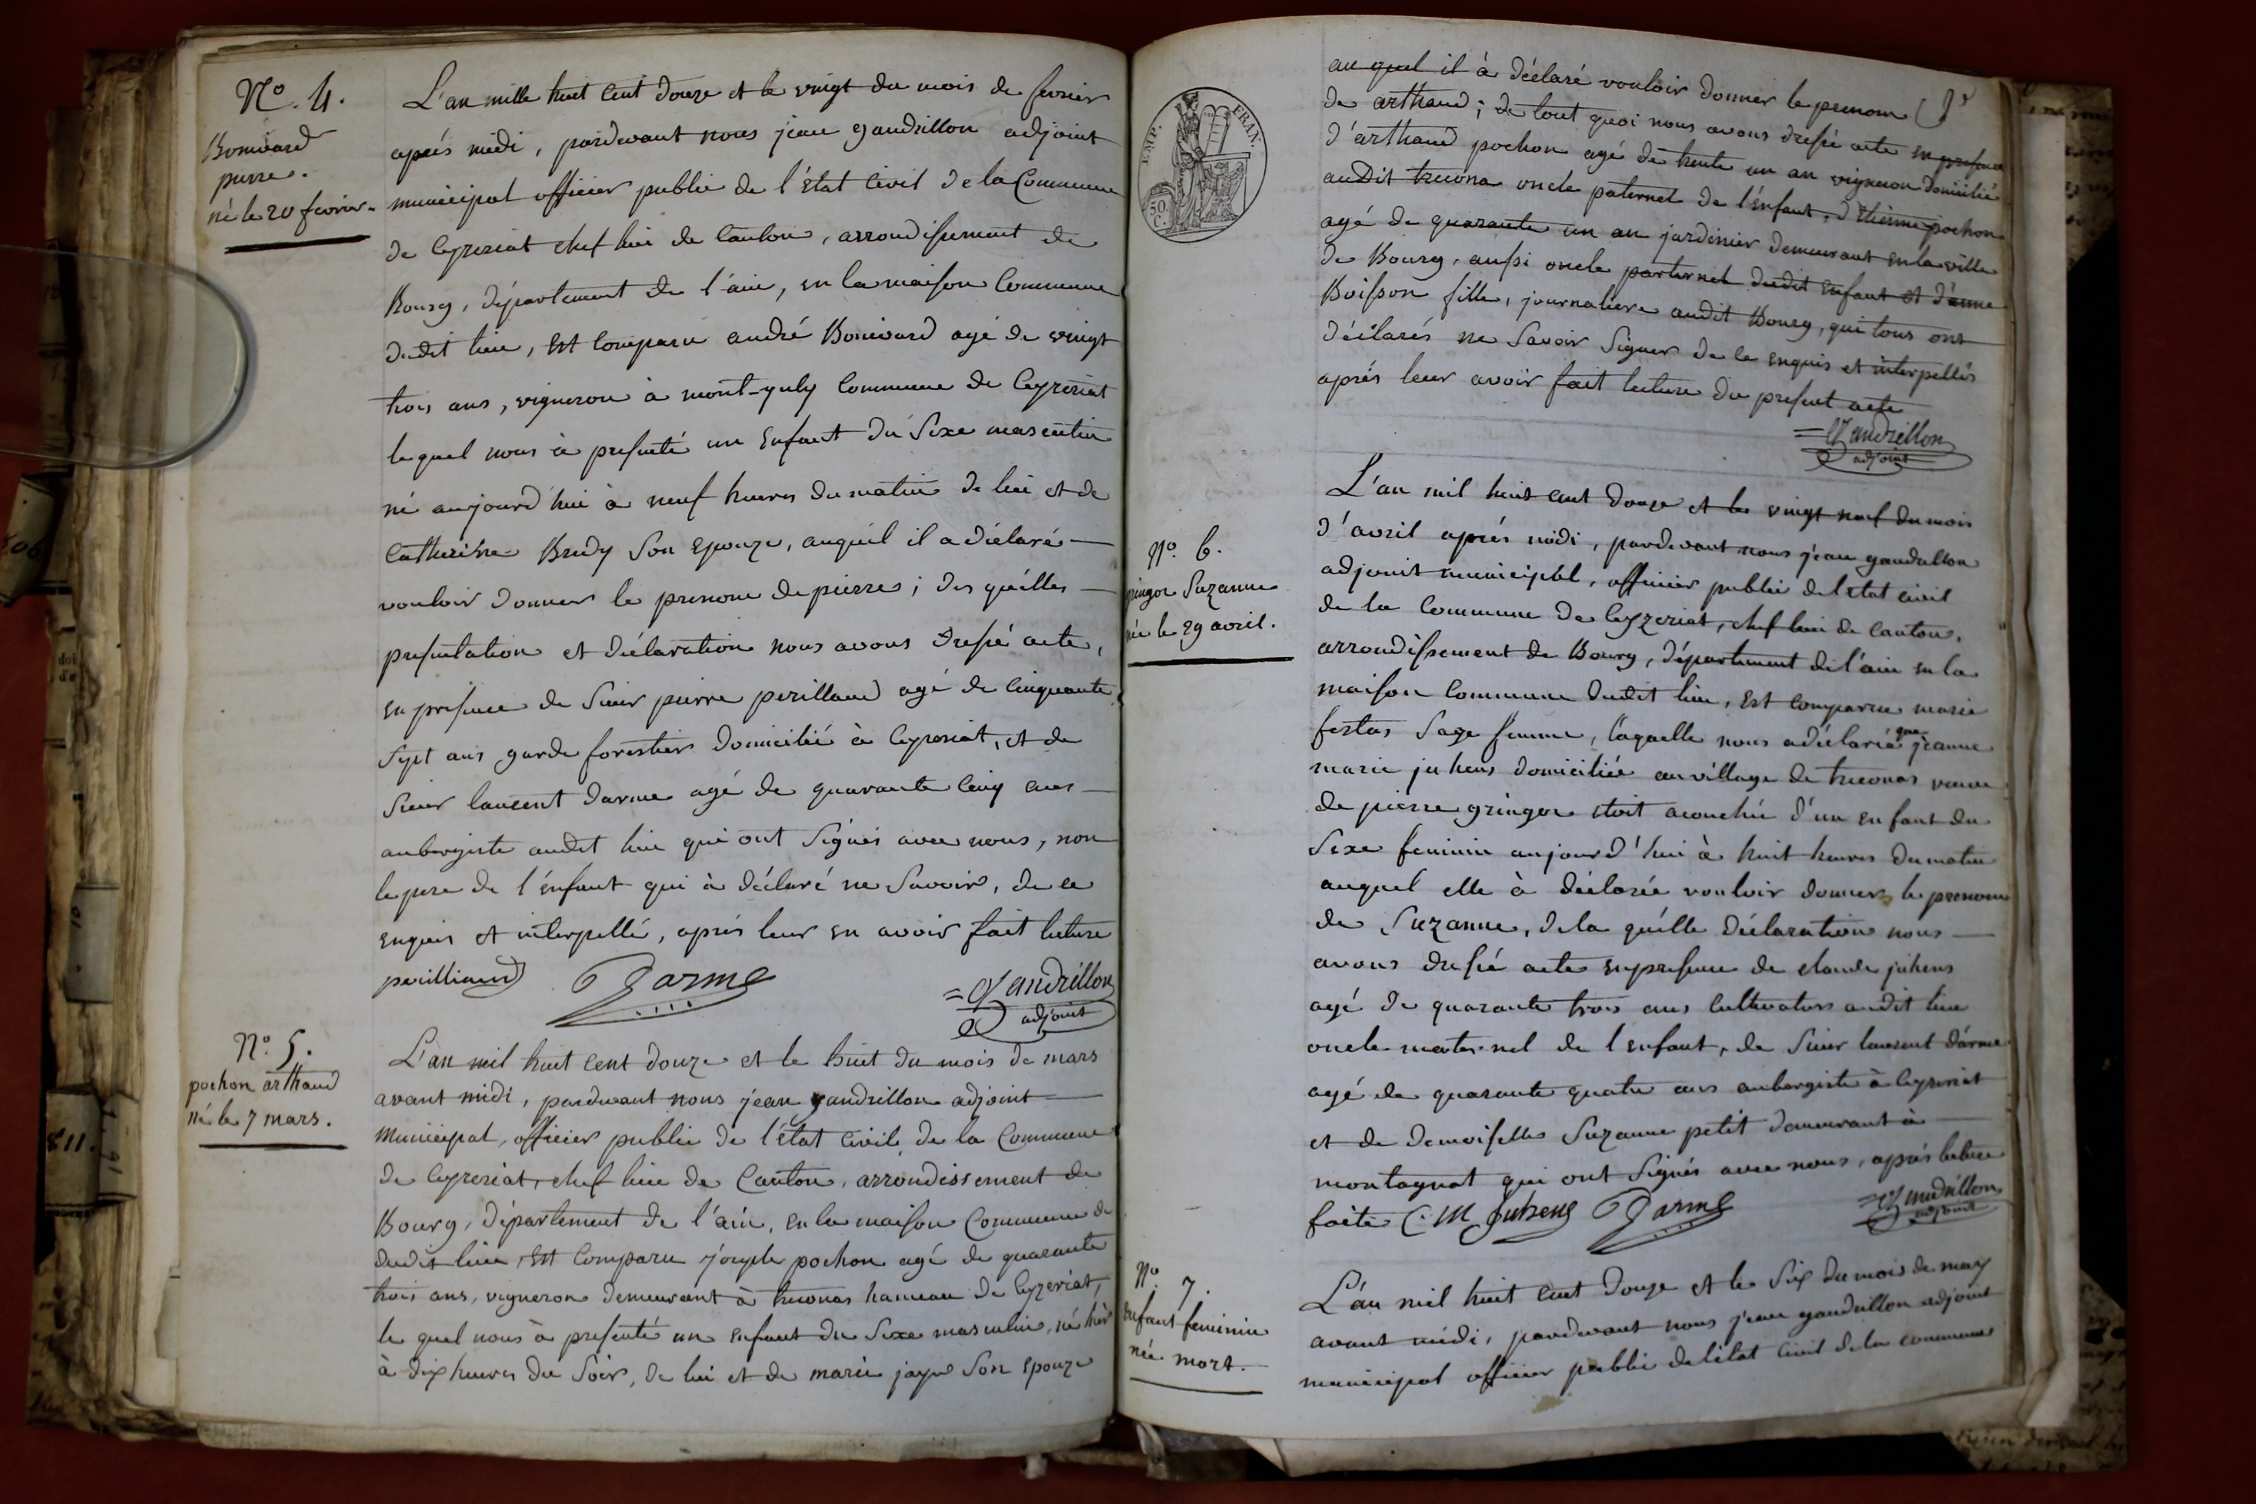 N.º 4.
Bonivard
pierre.
né le 20 fevrier.
L'an mille huit cent douze et le vingt du mois de fevrier
après midi, pardevant nous jean gandrillon adjoint
municipal officier public de l'état civil de la Commune
de Ceyzeriat chef lieu de Canton, arrondissement de
Bourg, département de l'ain, en la maison Commune
dudit lieu, est comparu andré Bonivard agé de vingt
trois ans, vigneron à mont-july Commune de Ceyzeriat
lequel nous à presenté un Enfant du Sexe masculin
né aujourd'hui à neuf heures du matin de lui et de
Catherine Brudy Son Epouze, auquél il a déclaré
vouloir donner le prenom de pierre; des quélles
presentation et déclaration nous avons dressé acte,
en presence de Sieur pierre perillaud agé de Cinquante
Sept ans garde forestier domicilié à Ceyzeriat, et de
Sieur laurent darme agé de quarante Cinq ans
aubergiste audit lieu qui ont Signés avec nous, non
le pere de l'énfant qui à déclaré ne Savoir, de ce
enquis et interpellé, après leur en avoir fait lecture
perilliaud Darme =Gandrillon
adjoint
N.º 5.
pochon arthaud
né le 7 mars.
L'an mil huit cent douze et le huit du mois de mars
avant midi, pardevant nous jean gandrillon adjoint
municipal, officier public de l'état civil de la Commune
de Ceyzeriat, chef lieu de Canton, arrondissement de
Bourg, département de l'ain, en la maison Commune de
dudit lieu, est Comparu joseph pochon agé de quarante
trois ans, vigneron demeurant à treconas hameau de Ceyzeriat,
le quel nous à presenté un enfant du Sexe masculin, né hier
à dix heures du Soir, de lui et de marie jayr Son Epouze
EMP. FRAN.
50
C.
au quel il à déclaré vouloir donner le prenom
de arthaud; de tout quoi nous avons dressé acte en presence
d'arthaud pochon agé de trente un an vigneron domicilié
audit trecona oncle paternel de l'énfant, d'étienne pochon
agé de quarante un an jardinier demeurant en la ville
de Bourg, aussi oncle parternel dudit enfant et d'anne
Boisson fille, journaliere audit Bourg, qui tous ont
déclarés ne Savoir Signer de ce enquis et interpellés
après leur avoir fait lecture du present acte
=Gandrillon
adjoint
N.º 6.
gringoz Suzanne
née le 29 avril.
L'an mil huit cent douze et le vingt neuf du mois
d'avril après midi, pardevant nous jean gandrillon
adjoint municipal, officier public de l'état civil
de la Commune de Ceyzeriat, chef lieu de Canton,
arrondissement de Bourg, département de l'ain en la
maison Commune dudit lieu, est comparue marie
festas Sage femme, laquelle nous a déclaré que jeanne
marie juhens domiciliée au village de treconas veuve
de pierre gringoz étoit acouchée d'un enfant du
Sexe feminin aujourd'hui à huit heures du matin
auquel elle à déclarée vouloir donner le prenom
de Suzanne, de la quélle déclaration nous
avons dressé acte en presence de claude juhens
agé de quarante trois ans Cultivateur audit lieu
oncle maternel de l'enfant, de Sieur laurent d'arme
agé de quarante quatre ans aubergiste à Ceyzeriat
et de demoiselle Suzanne petit demeurant à
montagnat qui ont Signés avec nous, après lecture
faite C. M Juhens Darme =Gandrillon
adjoint
N.º 7.
Enfant feminin
née mort.
L'an mil huit cent douze et le Six du mois de may
avant midi, pardevant nous jean gandrillon adjoint
municipal officier public de l'état civil de la commune
811.